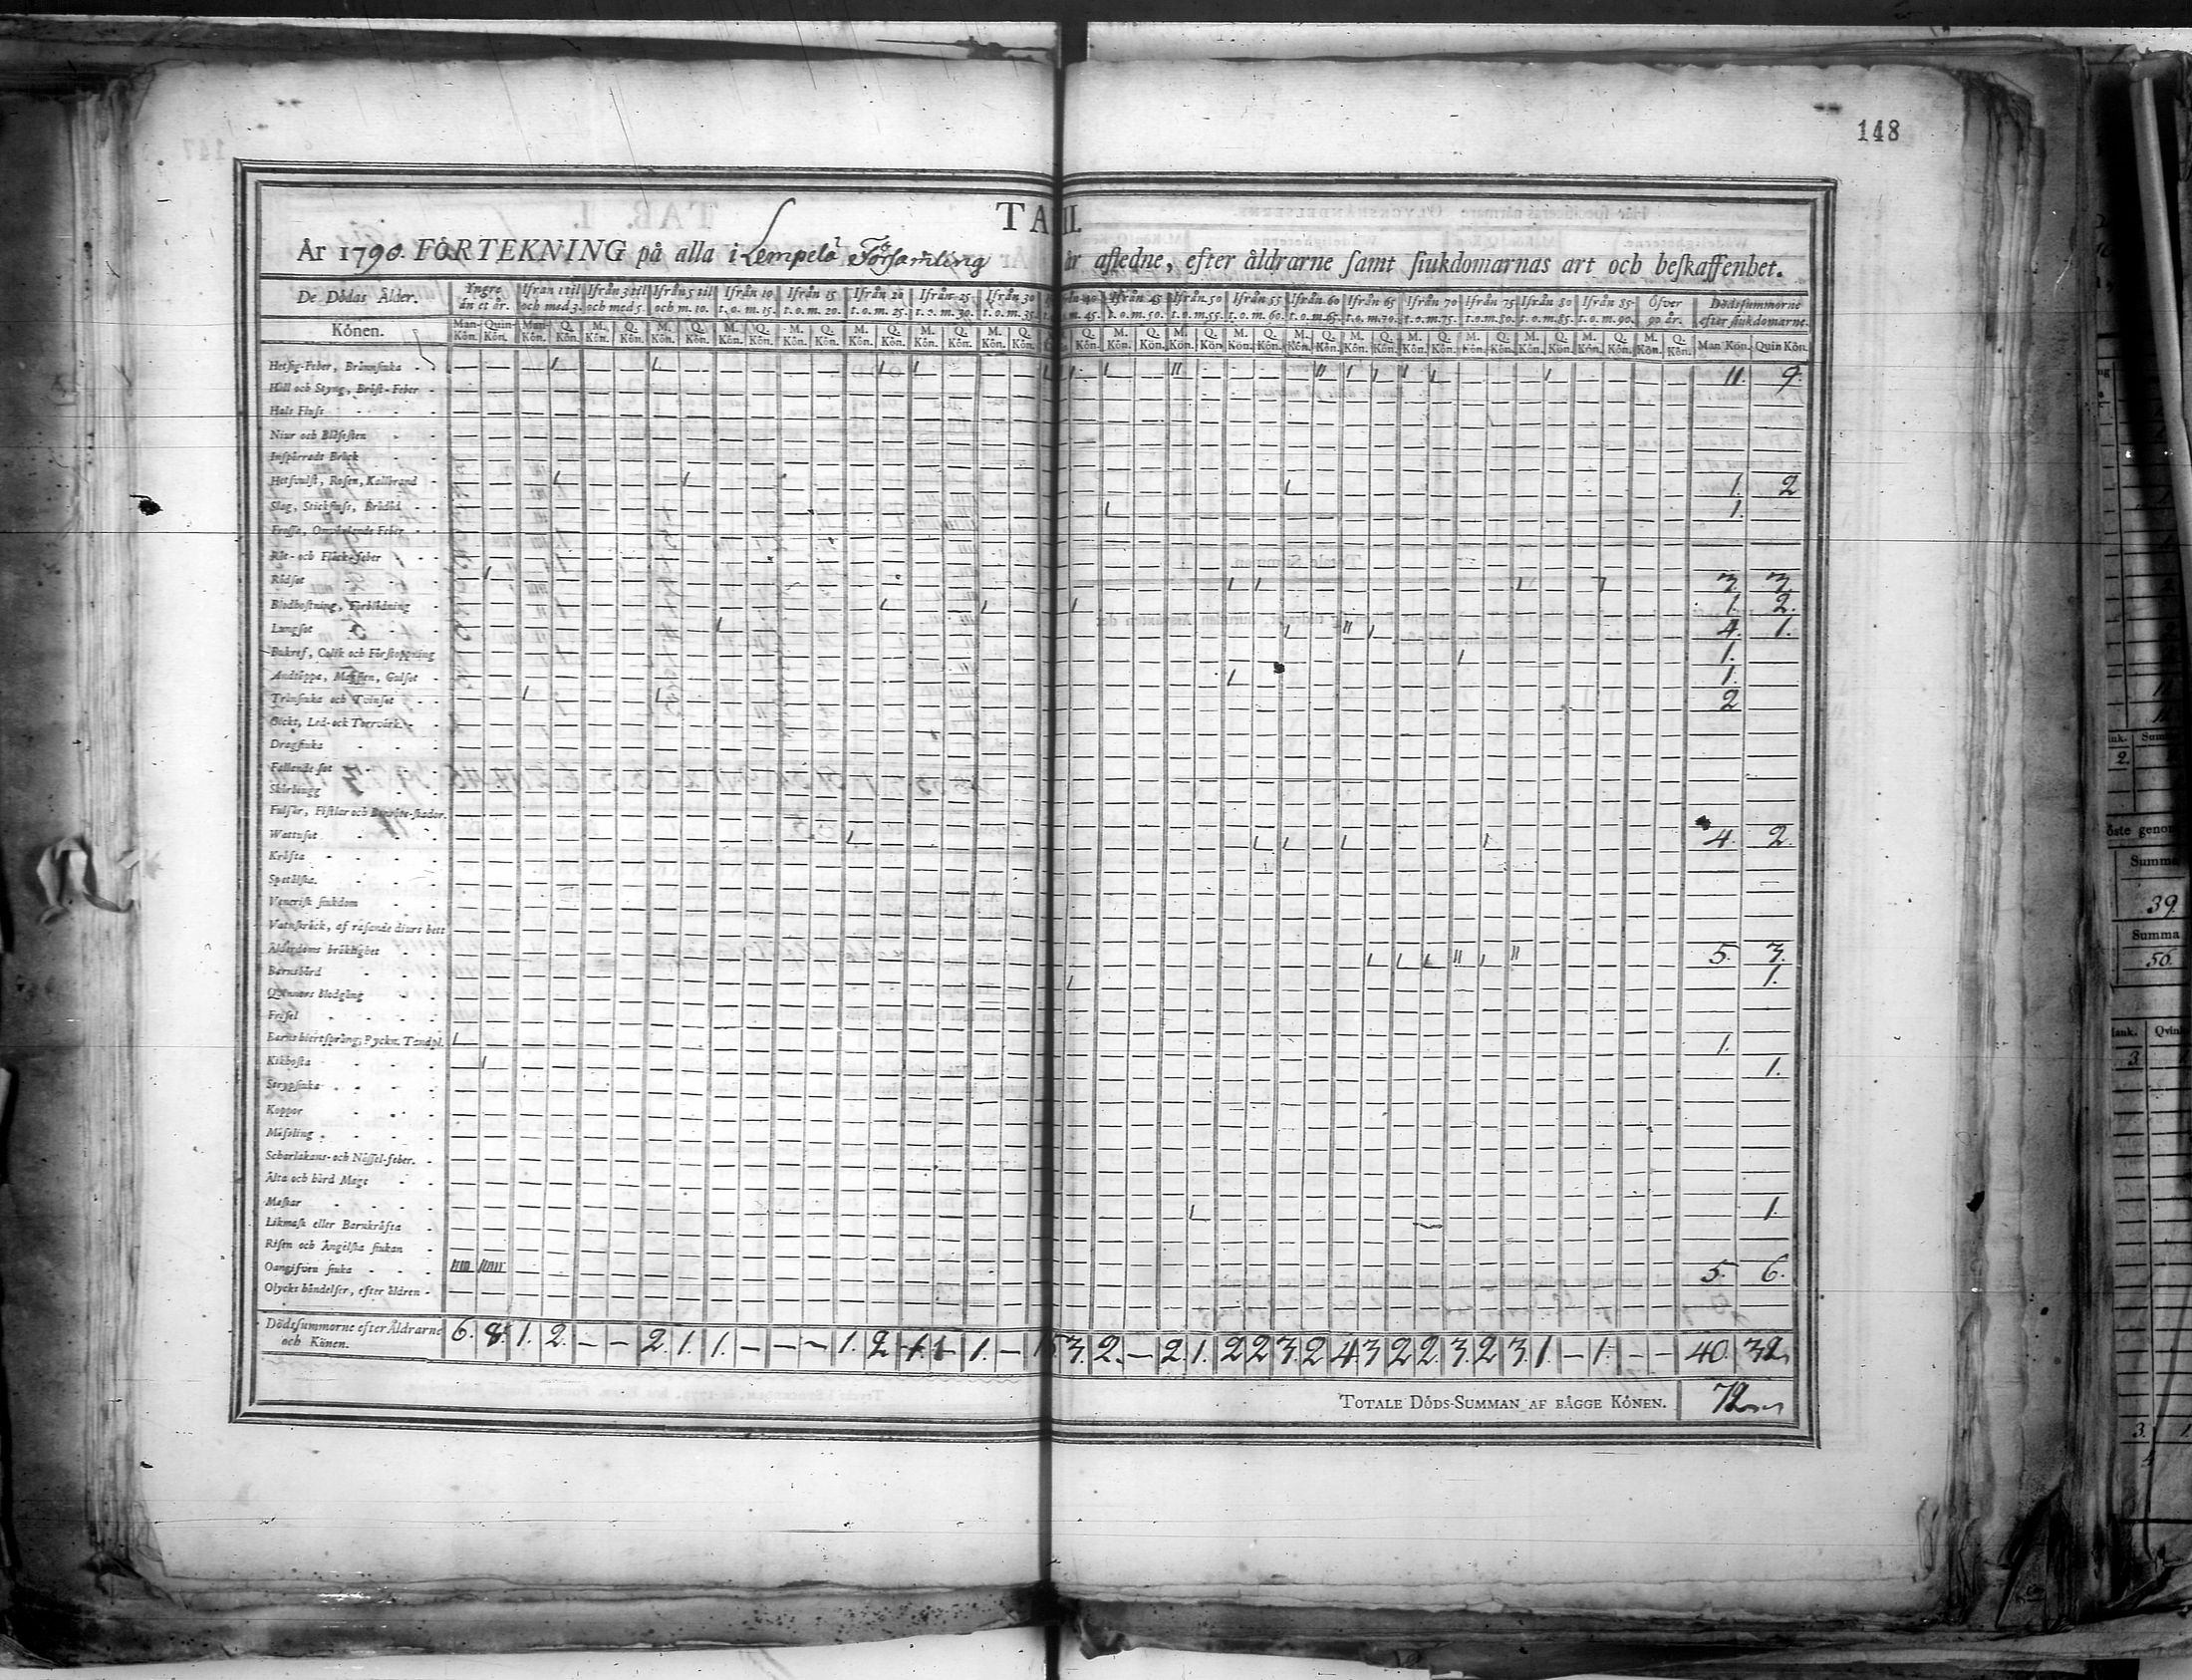 148
TAB II.
År 1790. FÖRTEKNING på alla i Lempelä Församling år afledne, efter åldrarne samt siukdomarnas art och beskaffenhet.
De Dödas Ålder. Yngre än et år. Ifrån 1 til och med 3. Ifrån 3 til och med 5. Ifrån 5 til och m. 10. Ifrån 10 t. o. m. 15. Ifrån 15 t. o. m. 20. Ifrån 20 t. o. m. 25. Ifrån 25 t. o. m. 30. Ifrån 30 t. o. m. 35. m. 45. Ifrån 45 t. o. m. 50. Ifrån 50 t. o. m. 55. Ifrån 55 t. o. m. 60. Ifrån 60 t. o. m. 65. Ifrån 65 t. o. m. 70. Ifrån 70 t. o. m. 75. Ifrån 75 t. o. m. 80. Ifrån 80 t. o. m. 85. Ifrån 85 t. o. m. 90. Öfver 90 år. Dödssummorne efter siukdomarne.
Könen. Man-Kön. Quin-Kön. Man-Kön. Q. Kön. M. Kön. Q. Kön. M. Kön. Q. Kön. M. Kön. Q. Kön. M. Kön. Q. Kön. M. Kön. Q. Kön. M. Kön. Q. Kön. M. Kön. Q. Kön. Q. Kön. M. Kön. Q. Kön. M. Kön. Q. Kön. M. Kön. Q. Kön. M. Kön. Q. Kön. M. Kön. Q. Kön. M. Kön. Q. Kön. M. Kön. Q. Kön. M. Kön. Q. Kön. M. Kön. Q. Kön. M. Kön. Q. Kön. Man Kön. Quin Kön.
Hetsig-Feber, Brännsiuka 11. 9.
Håll och Styng, Bröst-Feber
Hals Fluss
Niur och Blåsesten
Inspärradt Bråck
Hetsvulst, Rosen, Kallbrand 1. 2
Slag, Stickfluss, Brådöd 1.
Frossa, Omväxlande Feber
Röt- och Fläck-feber
Rödsot 3. 3.
Blodhostning, Förblödning 1. 2.
Lungsot 4. 1.
Bukref, Colik och Förstoppning 1.
Andtäppa, Mässlen, Gulsot 1.
Tränsiuka och Tvinsot 2
Gickt, Led- och Torrvärk.
Dragsiuka
Fallande sot
Skörbiugg
Fulsår, Fistlar och Benröte-skador.
Wattusot 4. 2.
Kräfta
Spetälska.
Venerisk siukdom
Vatnskräck, af rasande diurs bett
Ålderdoms bräklighet 5. 3.
Barnsbörd 1.
Qvinnors blodgång
Frisel
Barns hiertsprång, Tandpl. 1.
Kikhosta 1.
Strypsiuka
Koppor
Mässling
Scharlakans- och Nässel-feber.
Älta och hård Mage
Maskar 1.
Likmask eller Barnkräfta
Risen och Ängelska siukan
Oangifven siuka 5. 6.
Olycks händelser, efter åldren
Dödssummorne efter Åldrarne och Könen. 6. 8. 1. 2. – – 2. 1. 1. – – – 1. 2. 1. – 3. 2. – 2. 1. 2 2 3. 2 4. 3 2 2. 3. 2 3. 1. – 1. – – 40. 32.
TOTALE DÖDS-SUMMAN AF BÅGGE KÖNEN. 72